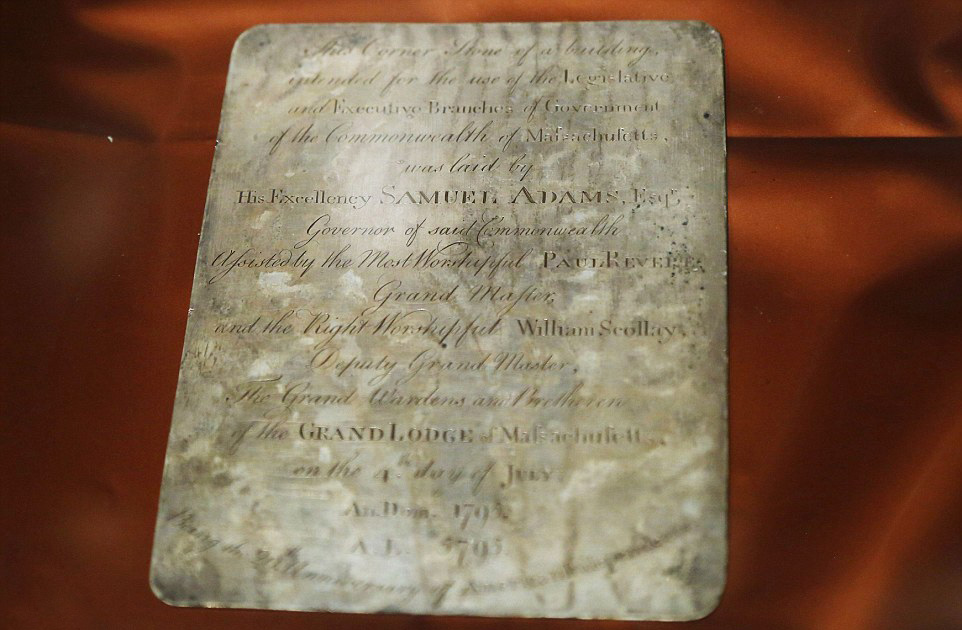 This Corner Stone of a building,
intended for the use of the Legislative
and Executive Branches of Government
of the Commonwealth of Maſsachuſetts,
was laid by
His Excellency SAMUEL ADAMS, Esqr.
Governor of said Commonwealth
Aſsisted by the Most Worshipful PAUL REVERE
Grand Maſter,
and the Right Worshipful William Scollay,
Deputy Grand Master,
The Grand Wardens and Brethren
of the GRAND LODGE of Maſsachuſetts,
on the 4th day of JULY
An. Dom. 1795.
A. L. 5795.
Being the Anniversary of